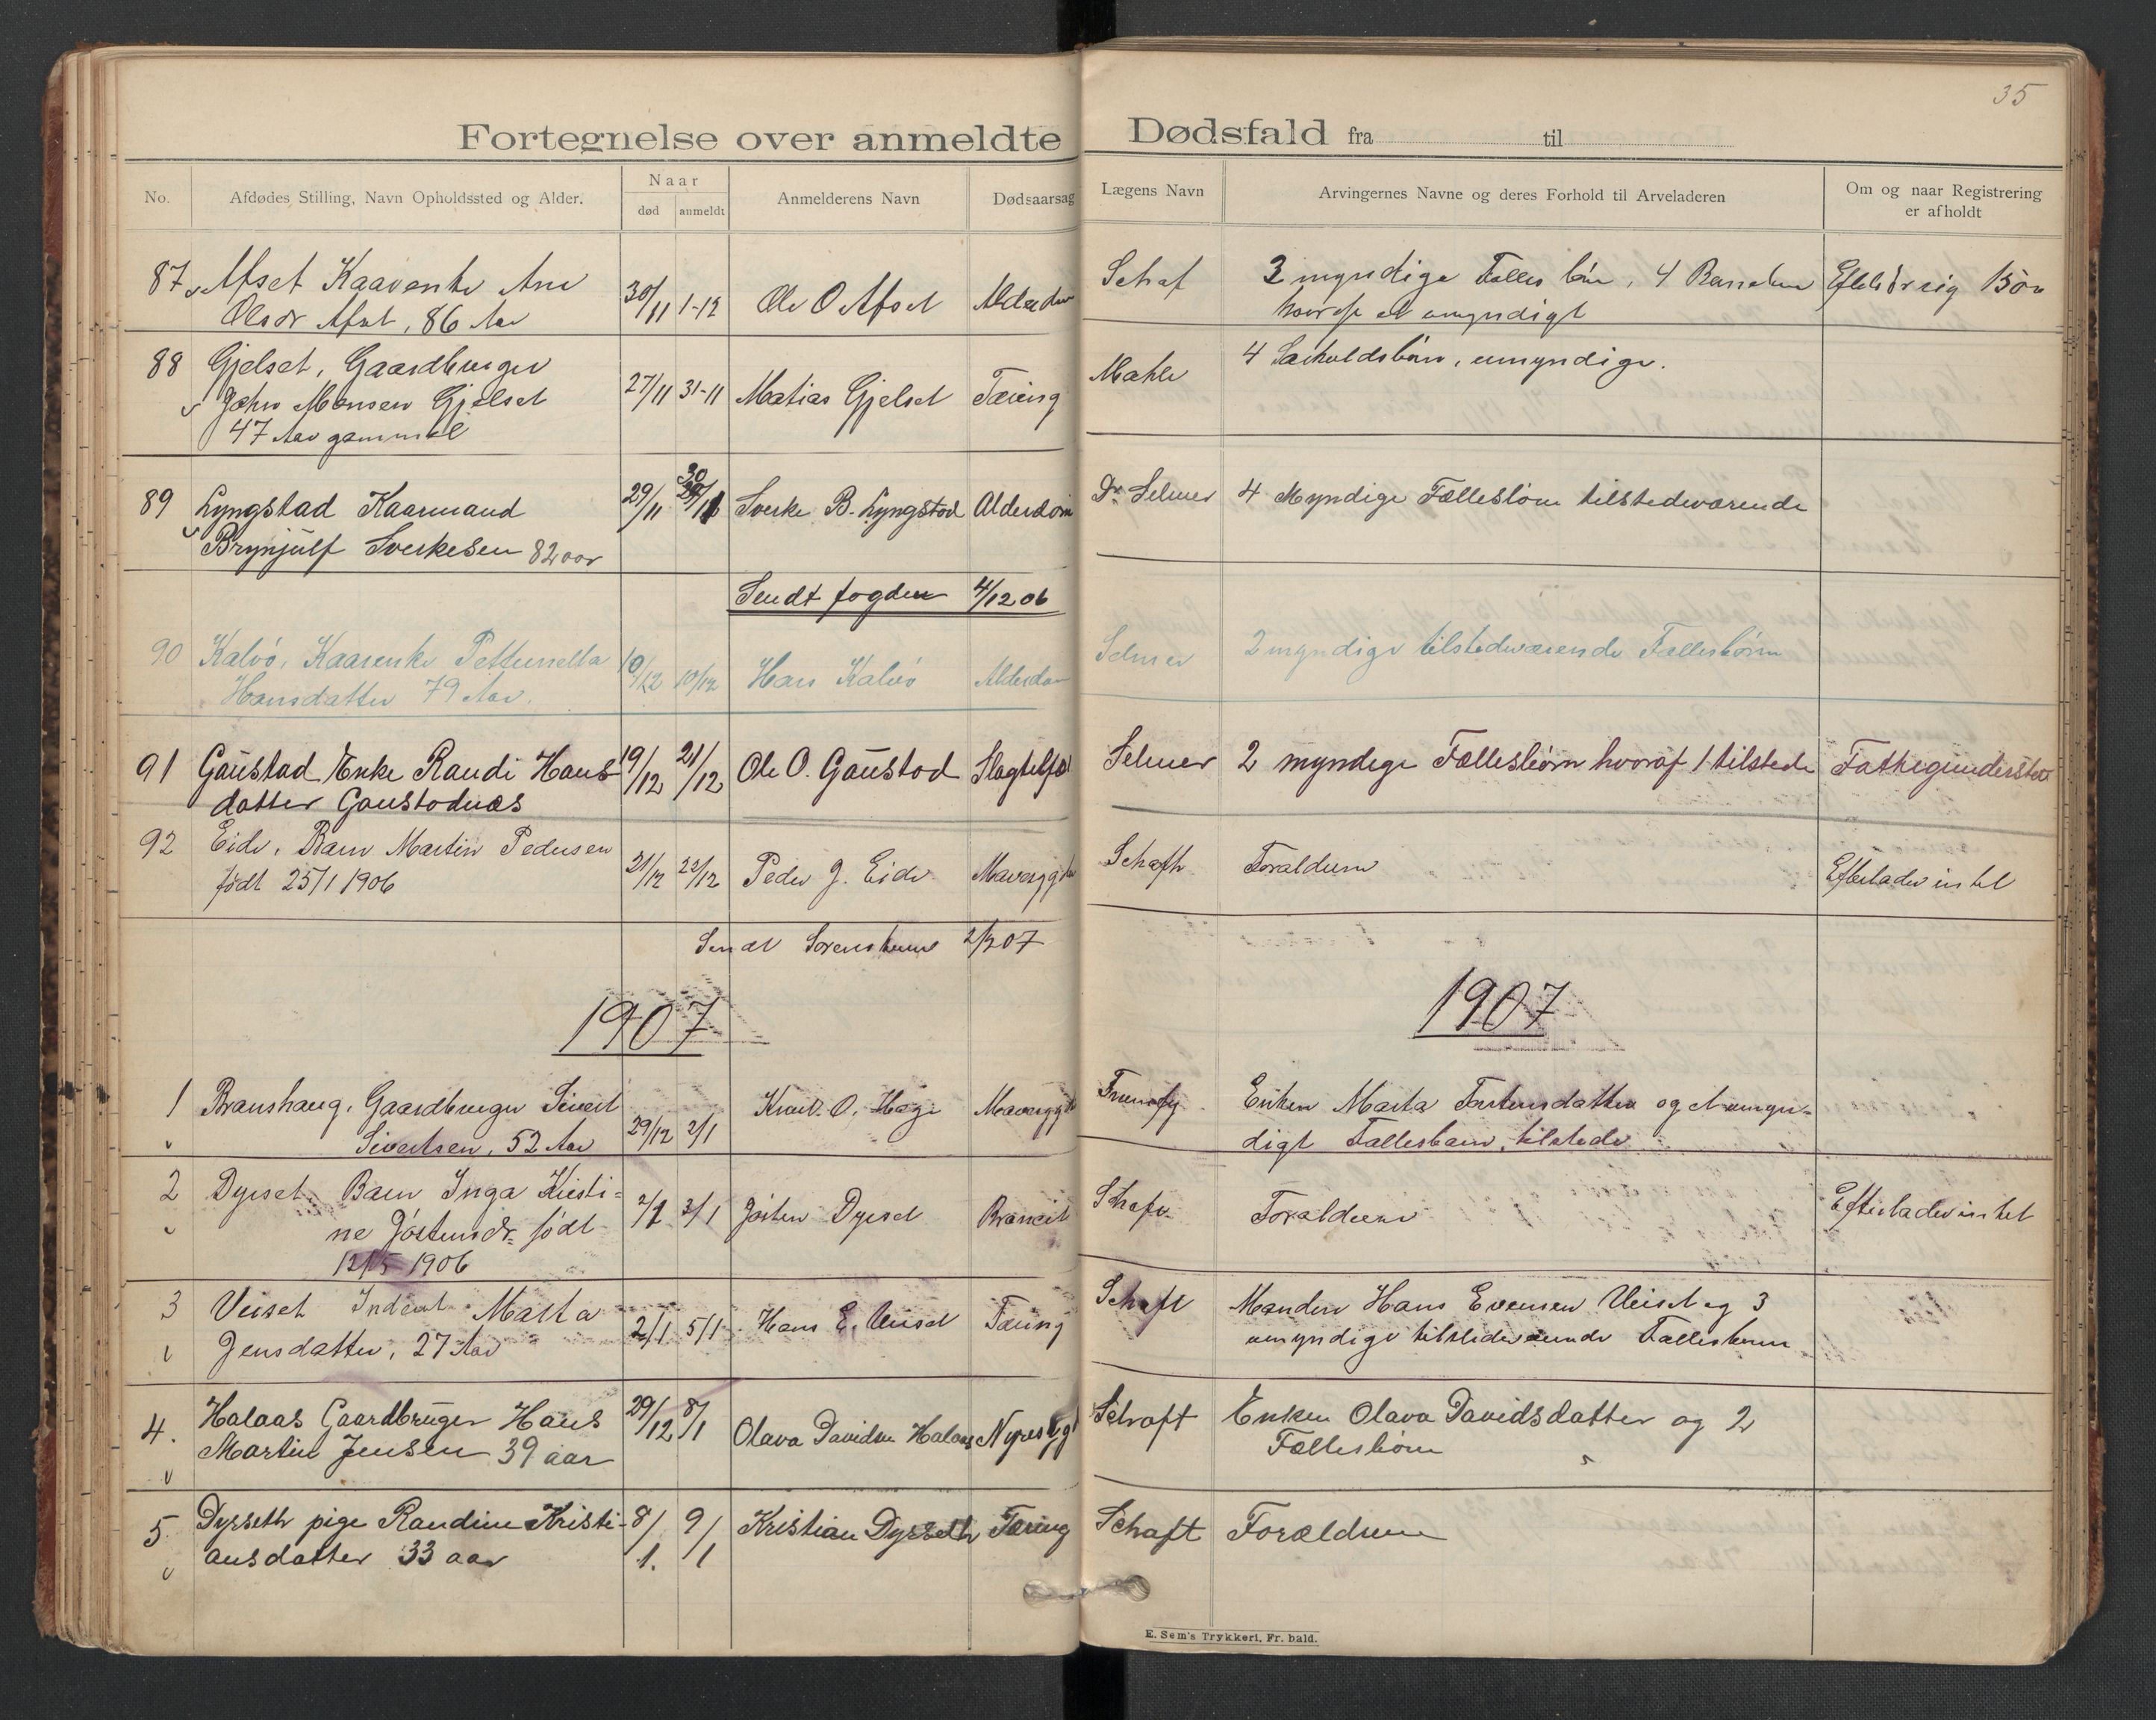 35
Fortegnelse over anmeldte Dødsfald fra til
No. Afdødes Stilling, Navn Opholdssted og Alder. Naar død anmeldt Anmelderens Navn Dødsaarsag Lægens Navn Arvingernes Navne og deres Forhold til Arveladeren Om og naar Registrering er afholdt
87 Afset Kaarenke Ane 30/11 1-12 Ole O Afset Alderdom Schaf 3 myndige Fælles børn, 4 Barnebørn
Olsdr Afset, 86 Aar et umyndigt
88 Gjelset, Gaardbruger 27/11 31-11 Matias Gjelset Tæring Mahle 4 Særkuldsbørn, umyndige.
John Monsen Gjelset
47 Aar gammel
89 Lyngstad Kaarmand 29/11 30/11 Sverke B. Lyngstad Alderdom Dr. Selmer 4 Myndige Fællesbørn tilstedeværende
Brynjulf Sverkesen 82 aar
Sendt fogden 4/12 06
90 Kalvö, Kaarenke Petternella 10/12 10/12 Hans Kalvö Alderdom Selmer 2 myndige tilstedeværende Fællesbørn
Hansdatter 79 Aar.
91 Gaustad Enke Randi Hans- 19/12 21/12 Ole O. Gaustad Selmer 2 myndige Fællesbørn hvoraf 1 tilstede Fattigunderstø
datter Gaustadnæs
92 Eide, Barn Martin Pedersen 21/12 22/12 Peder J. Eide Schaft Foraldrene Efterlader intet
født 25/1 1906
Sendt Sorenskriver 2/1 07
1907 1907
1 Branshaug, Gaardbruger Sivert 29/12 2/1 Knut O. Hage Enken Marta Torstensdatter og et umyn-
Sivertsen, 52 Aar digt Fællesbarn, tilstede
2 Dyrset, Barn Inga Kristi- 2/1 3/1 Jósten Dyrset Schaft Foraldrene Efterlader intet
ne Jóstensdr. født
12/5 1906
3 Veiset Marta 2/1 5/1 Hans E. Veiset Tæring Schaft Manden Hans Evensen Veiset og 3
Jensdatter, 27 Aar umyndige tilstedeværende Fællesbørn
4. Halaas Gaardbruger Hans 29/12 8/1 Olava Davidsn Halaas Nyresyg Schaft Enken Olava Davidsdatter og 2
Martin Jensen 39 aar Fællesbørn
5 Dyrseth pige Randine Kristi- 8/1. 9/1 Kristian Dyrseth Tæring Schaft Forældrene
ansdatter 33 aar
E. Sem's Trykkeri, Fr. hald.